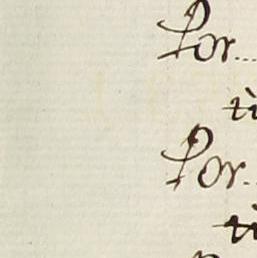 Por...
tì
Por..
tì